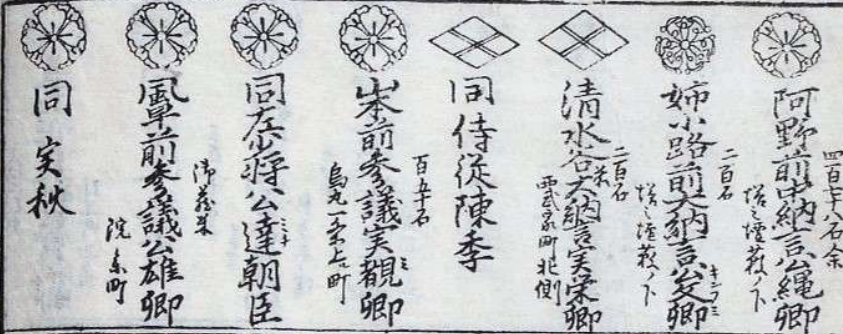 四百七十八石余
阿野前中納言公縄卿
塔之壇藪ノ下
二百石
姉小路前大納言公文卿
キンフミ
塔之壇藪ノ下
二百石
清水谷大納言実栄卿
西武家町北側
同侍従陳季
百五十石
山本前参議実観卿
烏丸一条上ル町
同左少将公達朝臣
御蔵米
風早前参議公雄卿
院参町
同 実秋